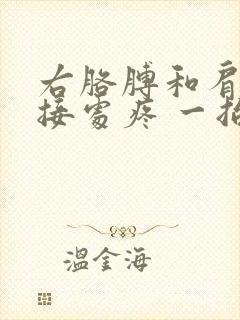 右胳膊和肩
接處疼 一抬
溫金海